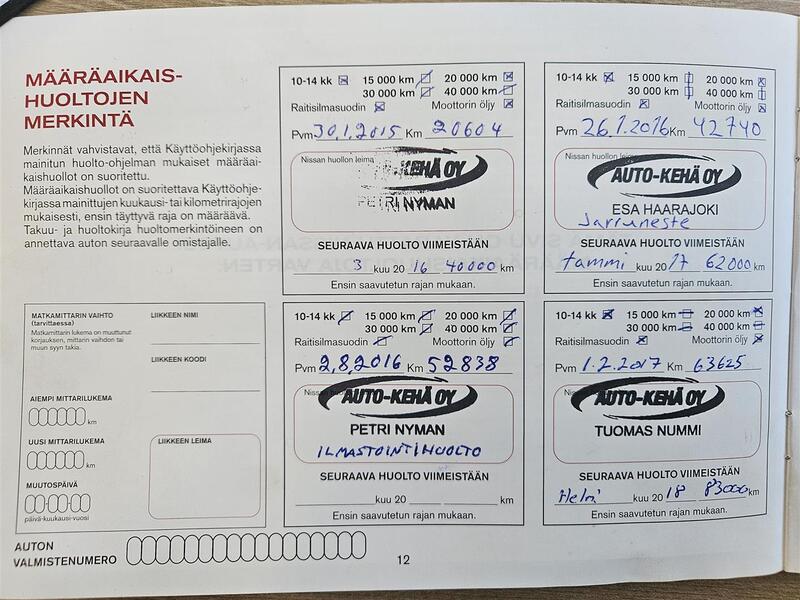 MÄÄRÄAIKAIS-
HUOLTOJEN
MERKINTÄ
Merkinnät vahvistavat, että Käyttöohjekirjassa
mainitun huolto-ohjelman mukaiset määräai-
kaishuollot on suoritettu.
Määräaikaishuollot on suoritettava Käyttöohje-
kirjassa mainittujen kuukausi- tai kilometrirajojen
mukaisesti, ensin täyttyvä raja on määräävä.
Takuu- ja huoltokirja huoltomerkintöineen on
annettava auton seuraavalle omistajalle.
MATKAMITTARIN VAIHTO
(tarvittaessa)
Matkamittarin lukema on muuttunut
korjauksen, mittarin vaihdon tai
muun syyn takia.
AIEMPI MITTARILUKEMA
km
UUSI MITTARILUKEMA
km
MUUTOSPÄIVÄ
päivä-kuukausi-vuosi
LIIKKEEN NIMI
LIIKKEEN KOODI
LIIKKEEN LEIMA
AUTON
VALMISTENUMERO
10-14 kk 15 000 km 20 000 km
30 000 km 40 000 km
Raitisilmasuodin Moottorin öljy
Pvm 30.1.2015 Km 20604
Nissan huollon leima
KEHÄ OY
PETRI NYMAN
SEURAAVA HUOLTO VIIMEISTÄÄN
3 kuu 20 16 40000 km
Ensin saavutetun rajan mukaan.
10-14 kk 15 000 km 20 000 km
30 000 km 40 000 km
Raitisilmasuodin Moottorin öljy
Pvm 26.1.2016 Km 42740
Nissan huollon leima
AUTO-KEHÄ OY
ESA HAARAJOKI
Jarruneste
SEURAAVA HUOLTO VIIMEISTÄÄN
tammi kuu 20 17 62000 km
Ensin saavutetun rajan mukaan.
10-14 kk 15 000 km 20 000 km
30 000 km 40 000 km
Raitisilmasuodin Moottorin öljy
Pvm 2,8,2016 Km 52838
Nissan
AUTO-KEHÄ OY
PETRI NYMAN
ILMASTOINTIHUOLTO
SEURAAVA HUOLTO VIIMEISTÄÄN
kuu 20 km
Ensin saavutetun rajan mukaan.
10-14 kk 15 000 km 20 000 km
30 000 km 40 000 km
Raitisilmasuodin Moottorin öljy
Pvm 1.2.2017 Km 63625
AUTO-KEHÄ OY
TUOMAS NUMMI
SEURAAVA HUOLTO VIIMEISTÄÄN
Helmi kuu 20 18 83000 km
Ensin saavutetun rajan mukaan.
12